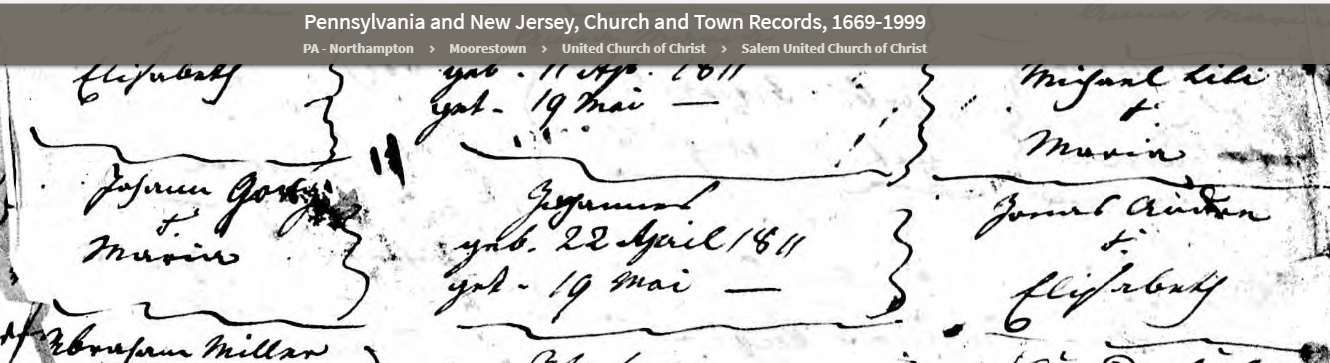 Pennsylvania and New Jersey, Church and Town Records, 1669-1999
PA - Northampton > Moorestown > United Church of Christ > Salem United Church of Christ
Elisabeth
geb. 11 Ap. 1811
get. 19 Mai —
Michael
+
Maria
Johann
+
Maria
Johannes
geb. 22 April 1811
get. 19 Mai —
Jonas
+
Elisabeth
Abraham Miller